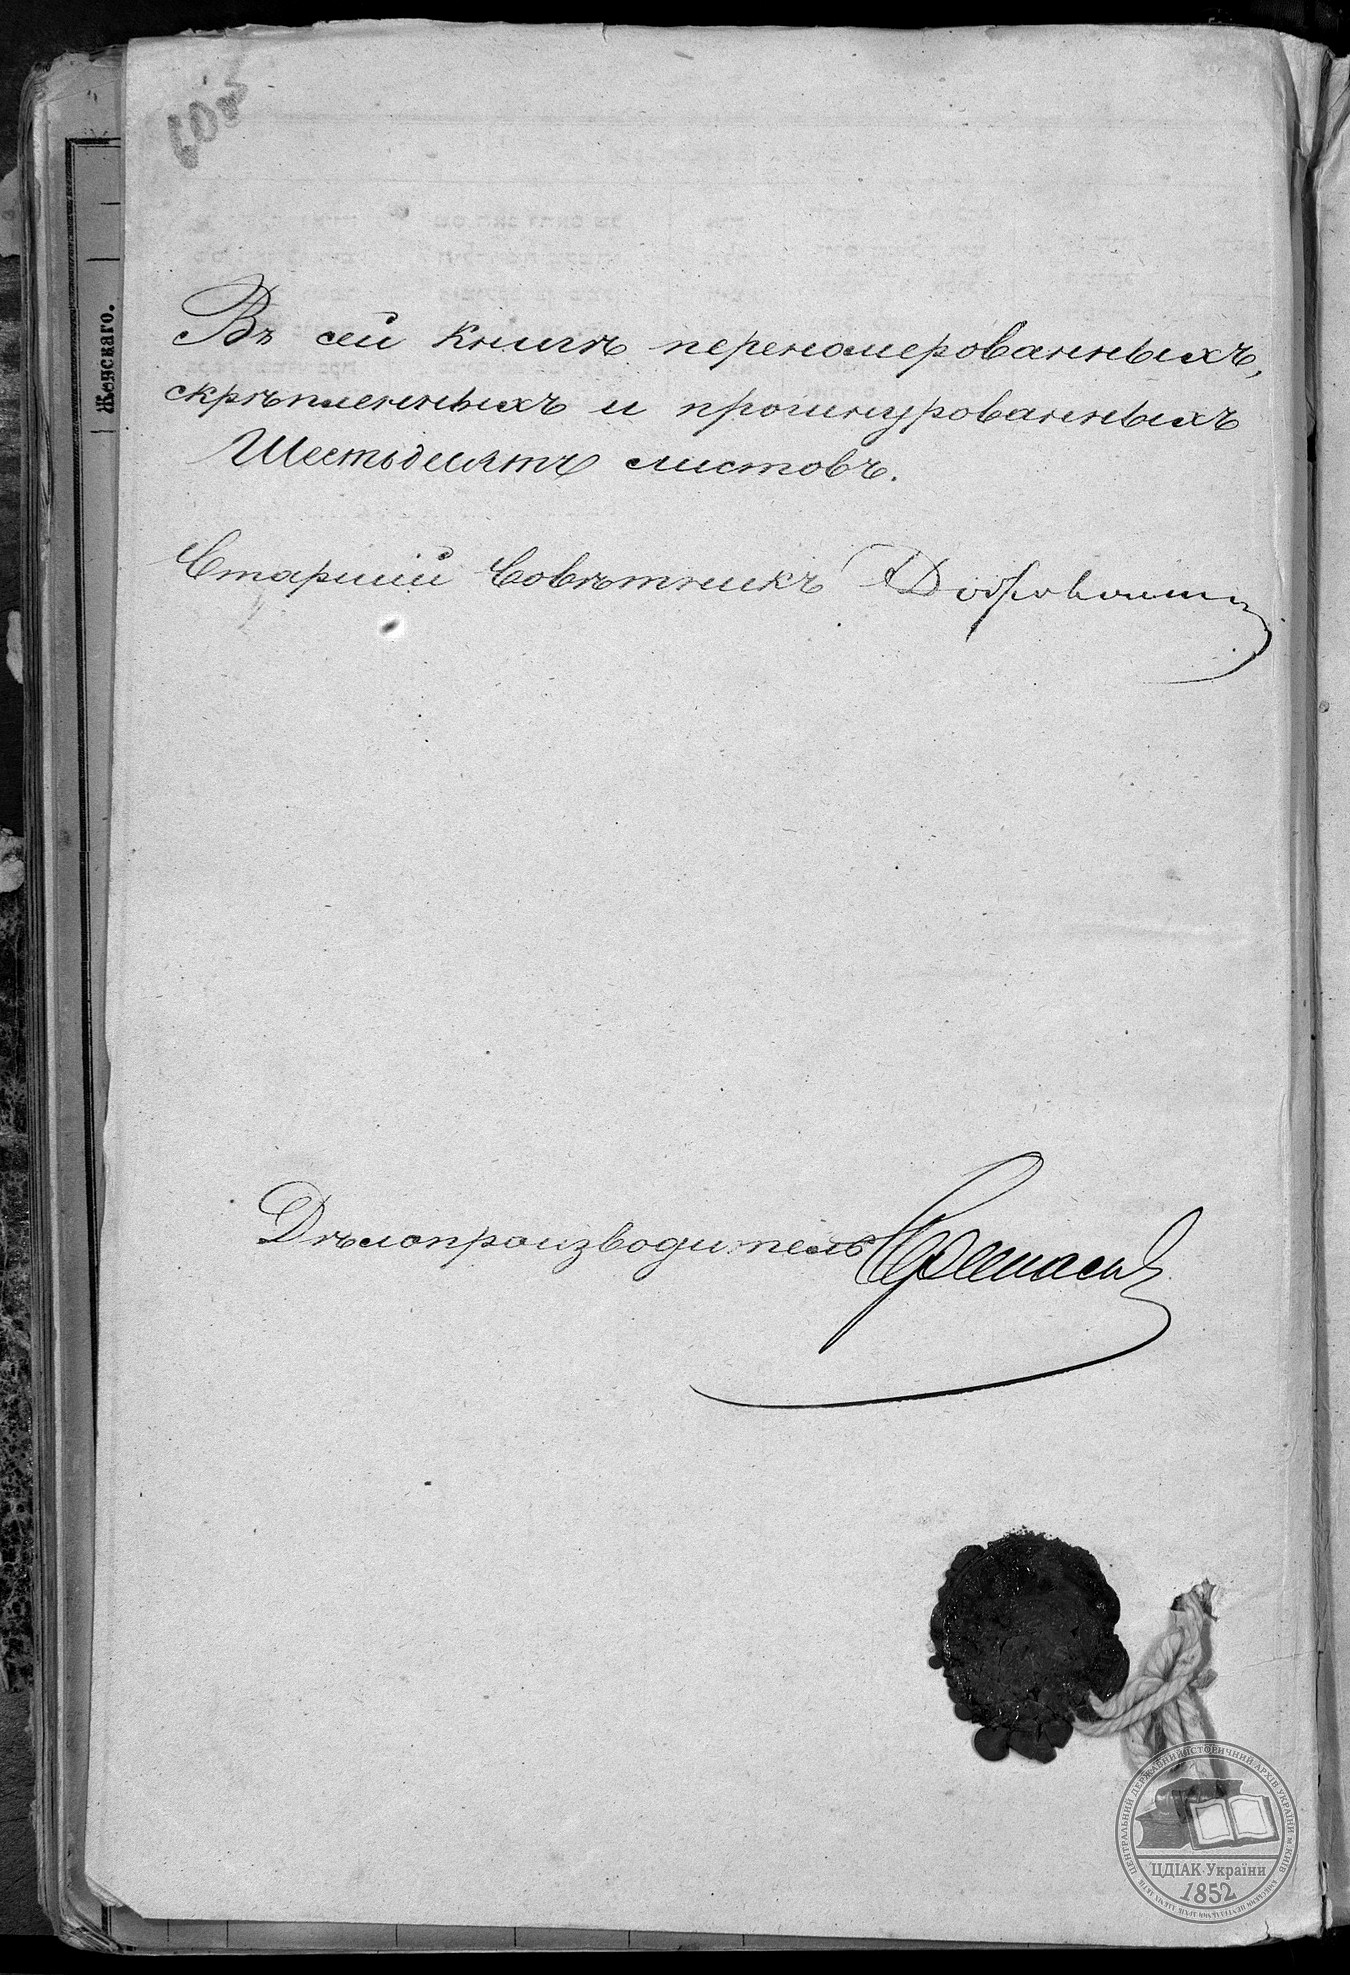 60об
Женскаго.
Въ сей книгѣ перенумерованныхъ,
скрѣпленныхъ и прошнурованныхъ
Шестьдесятъ листовъ.
Старшій Совѣтникъ
Дѣлопроизводитель
ЦЕНТРАЛЬНИЙ ДЕРЖАВНИЙ ІСТОРИЧНИЙ АРХІВ УКРАЇНИ м. КИЇВ
ЦДІАК України
1852